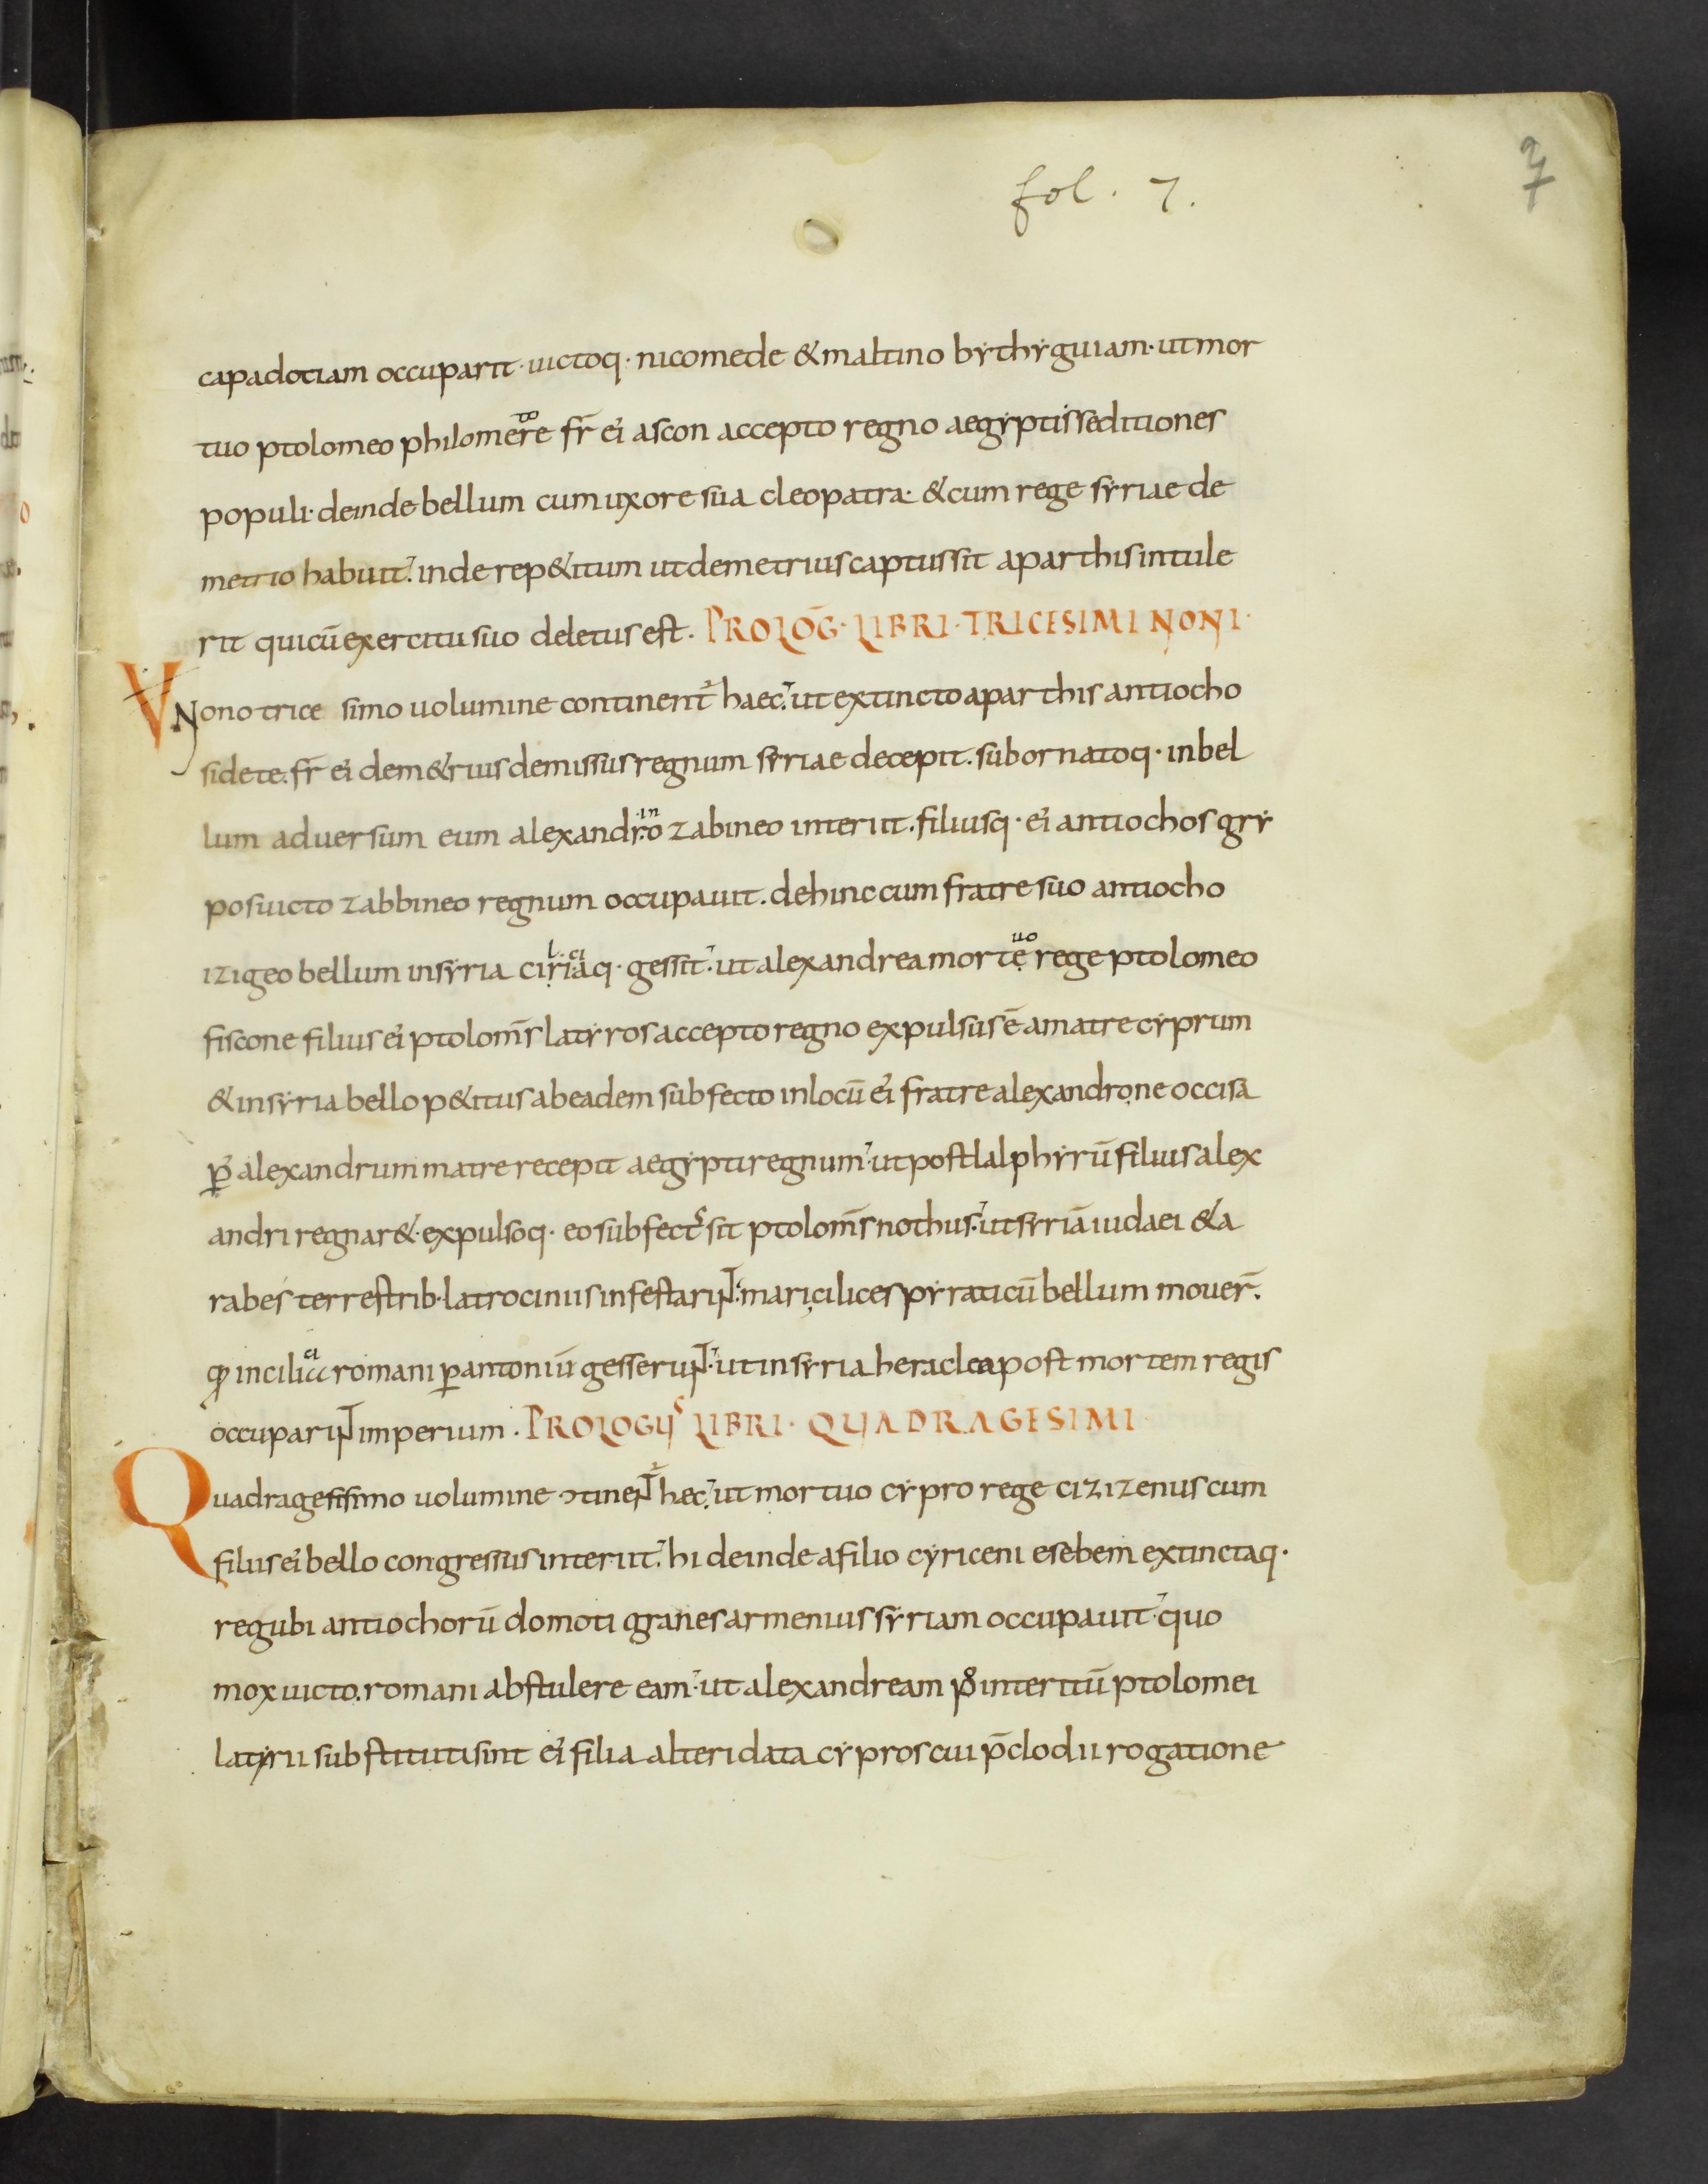 fol. 7.
7
capadotiam occuparit · uictoq· nicomede & maltino bẏthẏguiam · ut mor
to
tuo ptolomeo philomere fr̄ ei' ascon accepto regno aegẏptis seditiones
populi · deinde bellum cum uxore sua cleopatra · & cum rege sẏriae de
metrio habuit · inde rep&itum ut demetrius captus sit a parthis intule
rit qui cū exercitu suo deletus est · PROLOḠ · LIBRI · TRICESIMI NONI ·
V Nono trice simo uolumine continent̄ haec · ut extincto a parthis antiocho
sidete · fr̄ ei' dem&rius demissus regnum sẏriae decepit · subornatoq· in bel
in
lum aduersum eum alexandro zabineo interiit · filiusq· ei' antiochos grẏ
pos uicto zabbineo regnum occupauit · dehinc cum fratre suo antiocho
l ci uo
izigeo bellum in sẏria ciriaq· gessit · ut alexandrea morte rege ptolomeo
fiscone filius ei' ptolom̄s latẏros accepto regno expulsus ē a matre cẏprum
& in sẏria bello p&itus ab eadem subfecto in locū ei' fratre alexandro ne occisa
p̄ alexandrum matre recepit aegẏpti regnum · ut post lalphẏrū filius alex
andri regnar& · expulsoq· eo subfect' sit ptolom̄s nothus · ut sẏriā iudaei & a
rabes terrestrib· latrociniis infestarint · mari cilices pẏraticū bellum mouer̄ ·
a
qd in cilicia romani p antoniū gesserunt · ut in sẏria heraclea post mortem regis
occuparint imperium · PROLOGUS LIBRI · QUADRAGESIMI
Quadragesisimo uolumine ɔtinent̄ hęc · ut mortuo cẏpro rege cizizenus cum
filiis ei' bello congressus interiit · hi deinde a filio cẏriceni esebem extinctaq·
regubi antiochorū domo ti granes armenius sẏriam occupauit · quo
mox uicto · romani abstulere eam · ut alexandream p' interitū ptolomei
latẏrii substituti sint ei' filia alteri data cẏpros cui p̄ clodii rogatione